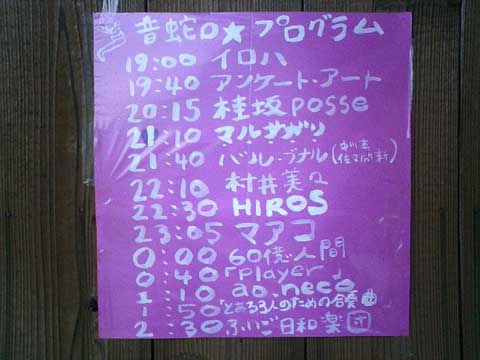 音蛇口★プログラム
19:00 イロハ
19:40 アンケート・アート
20:15 桂坂posse
21:10 マルサガリ
21:40 バル・ブナル(中川恵 佐々木新)
22:10 村井美口
22:30 HIROS
23:05 マアコ
0:00 60億人間
0:40 「player」
1:10 ao.neco
1:50 「とある3人のための合奏曲」
2:30 ふいご日和楽団